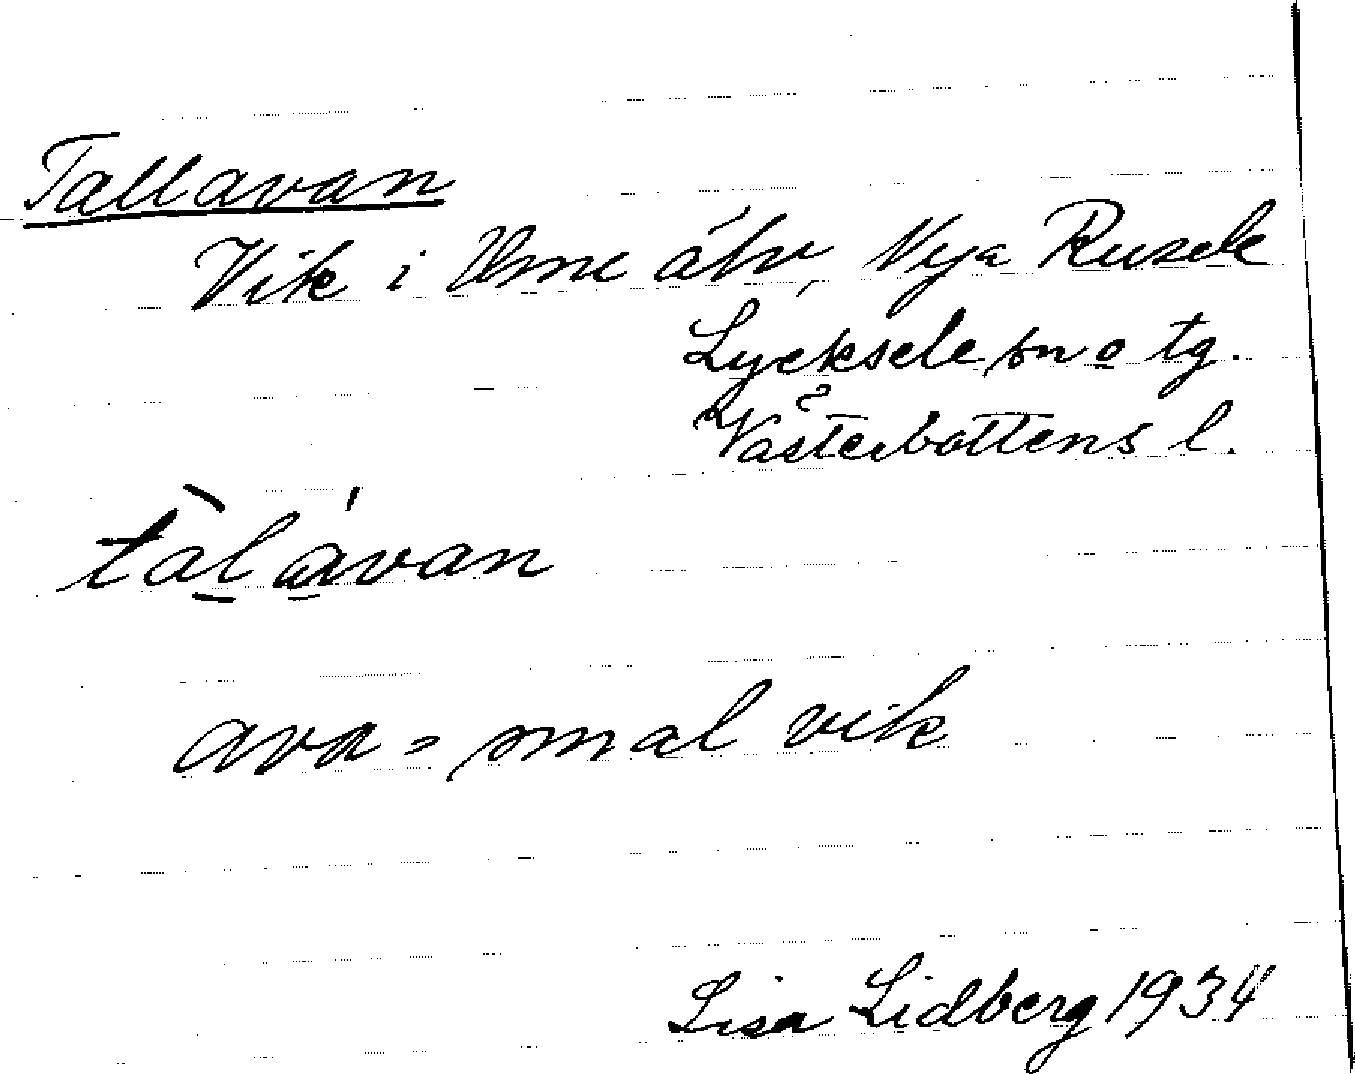 Tallavan
Vik i Ume älv, Nya Rusele
Lycksele sn o tg.
Västerbottens l.
tàl ávan
ava = smal vik
Lisa Lidberg 1934